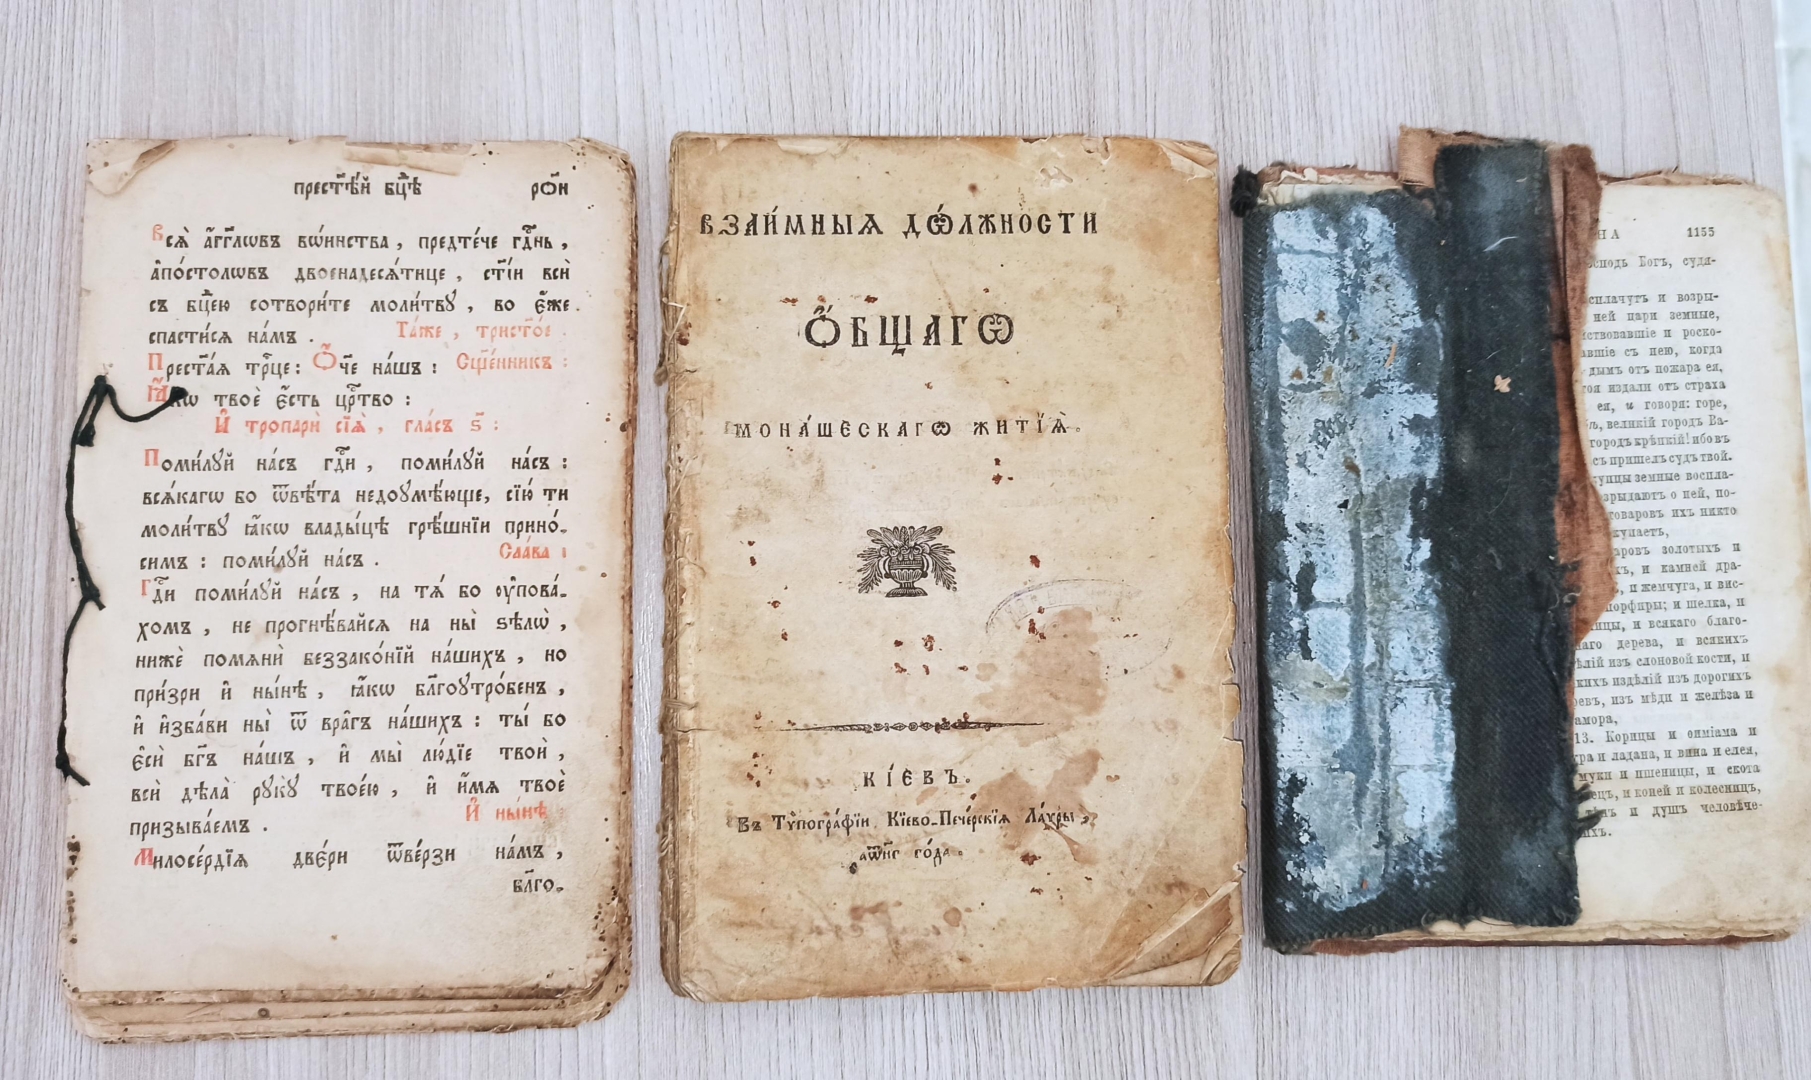 прест҃ѣ́й бц҃ѣ рѿи
Всѧ̑ а҆́гг҃лѡвъ вѡ́инства , предте́че гд҇нь ,
а҆по́столѡвъ двоенадесѧ́тице , ст҃і́и всѝ
съ бц҃ею сотвори́те моли́твꙋ , во є҆́же
спасти́сѧ на́мъ . Та́же , трист҃о́е .
Прест҃а́ѧ трⷪ҇це : Ѻ҆́ч҃е на́шъ : Сщ҃е́нникъ :
Ꙗ҆́кѡ твоѐ є҆́сть црⷭ҇тво :
И҆ тропарѝ сїѧ̑ , гла́съ ѕ҃ :
Поми́лꙋй на́съ гд҇и , поми́лꙋй на́съ :
всѧ́кагѡ бо ѿвѣ́та недоꙋмѣ́юще, сїю́ ти
моли́твꙋ ꙗ҆́кѡ влады́цѣ грѣ́шнїи прино́-
симъ : поми́лꙋй на́съ . Сла́ва :
Гд҇и поми́лꙋй на́съ , на тѧ́ бо оу҆пова́-
хомъ , не прогнѣ́вайсѧ на ны̀ ѕѣлѡ̀ ,
нижѐ помѧнѝ беззако́нїй на́шихъ , но
при́зри и҆ ны́нѣ , ꙗ҆́кѡ бл҃гоутро́бенъ ,
и҆ и҆зба́ви ны̀ ѿ вра̑гъ на́шихъ : ты́ бо
є҆сѝ бг҃ъ на́шъ , и҆ мы̀ лю́дїе твоѝ ,
всѝ дѣла̀ рꙋкꙋ̀ твоє́ю , и҆ и҆́мѧ твоѐ
призыва́емъ . И҆ ны́нѣ
Милосе́рдїѧ две́ри ѿве́рзи на́мъ ,
бл҃го-
ВЗАИ́МНЫѦ ДѠ́ЛЖНОСТИ
Ѻ҆́БЩАГѠ
МОНА́ШЕСКАГѠ ЖИТІѦ̀.
КІ́ЕВЪ.
Въ Тѷпогра́фїи Кїево-Пече́рскїѧ Ла́ѵры ,
го́да .
НА 1155
Богъ, судя-
и возры-
ней цари земные,
и роско-
съ нею, когда
дымъ отъ пожара ея,
издали отъ страха
ея, и говоря: горе,
великій городъ Ва-
городъ крѣпкій! ибо въ
пришелъ судъ твой.
земные воспла-
о ней, по-
товаровъ ихъ никто
купаетъ,
золотыхъ и
и камней дра-
и жемчуга, и вис-
порфиры; и шелка, и
и всякаго благо-
дерева, и всякихъ
изъ слоновой кости, и
издѣлій изъ дорогихъ
изъ мѣди и желѣза и
13. Корицы и ѳиміама и
и ладана, и вина и елея,
муки и пшеницы, и скота
и коней и колесницъ,
и душъ человѣче-